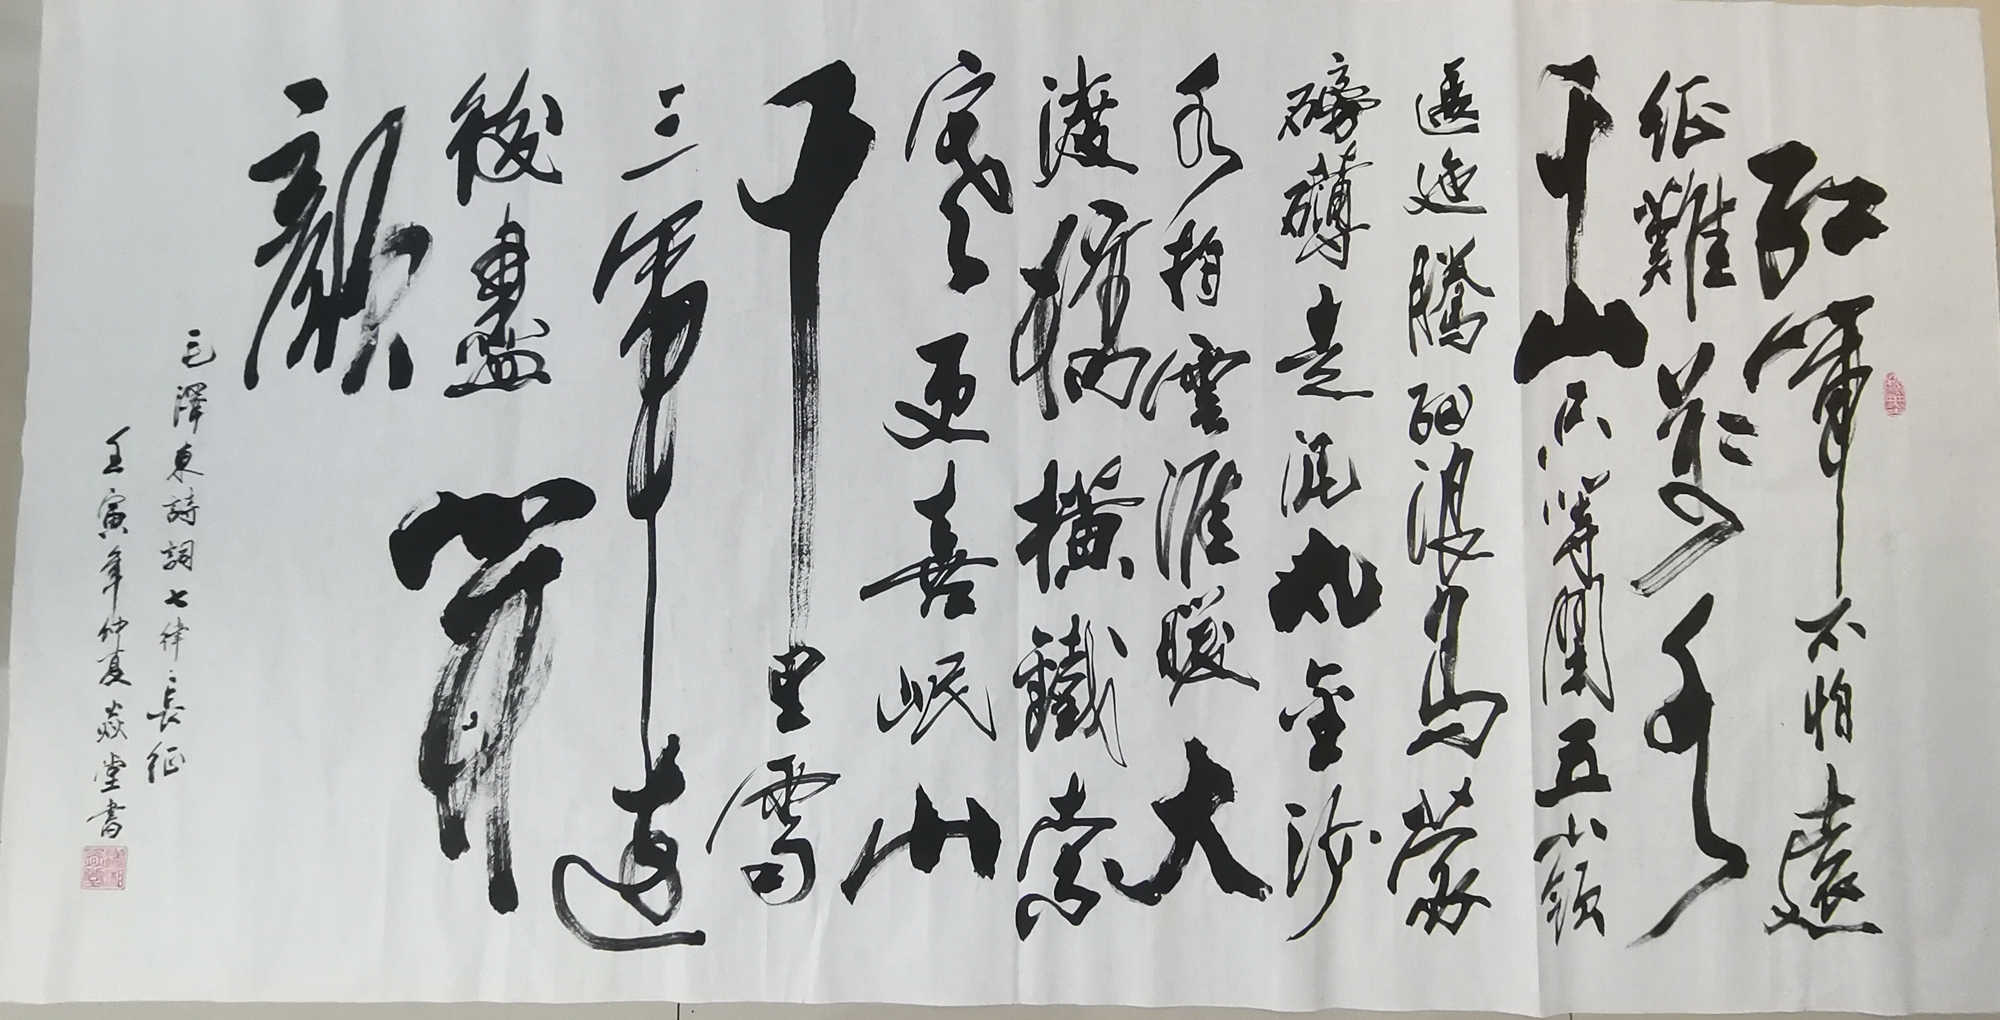 紅軍不怕遠
征難萬水
千山只等閑五嶺
逶迤騰細浪烏蒙
磅礴走泥丸金沙
水拍雲涯暖大
渡橋橫鐵索
寒更喜岷山
千里雪
三軍過
後盡開
顏
毛澤東詩詞七律·長征
壬寅年仲夏焱堂書